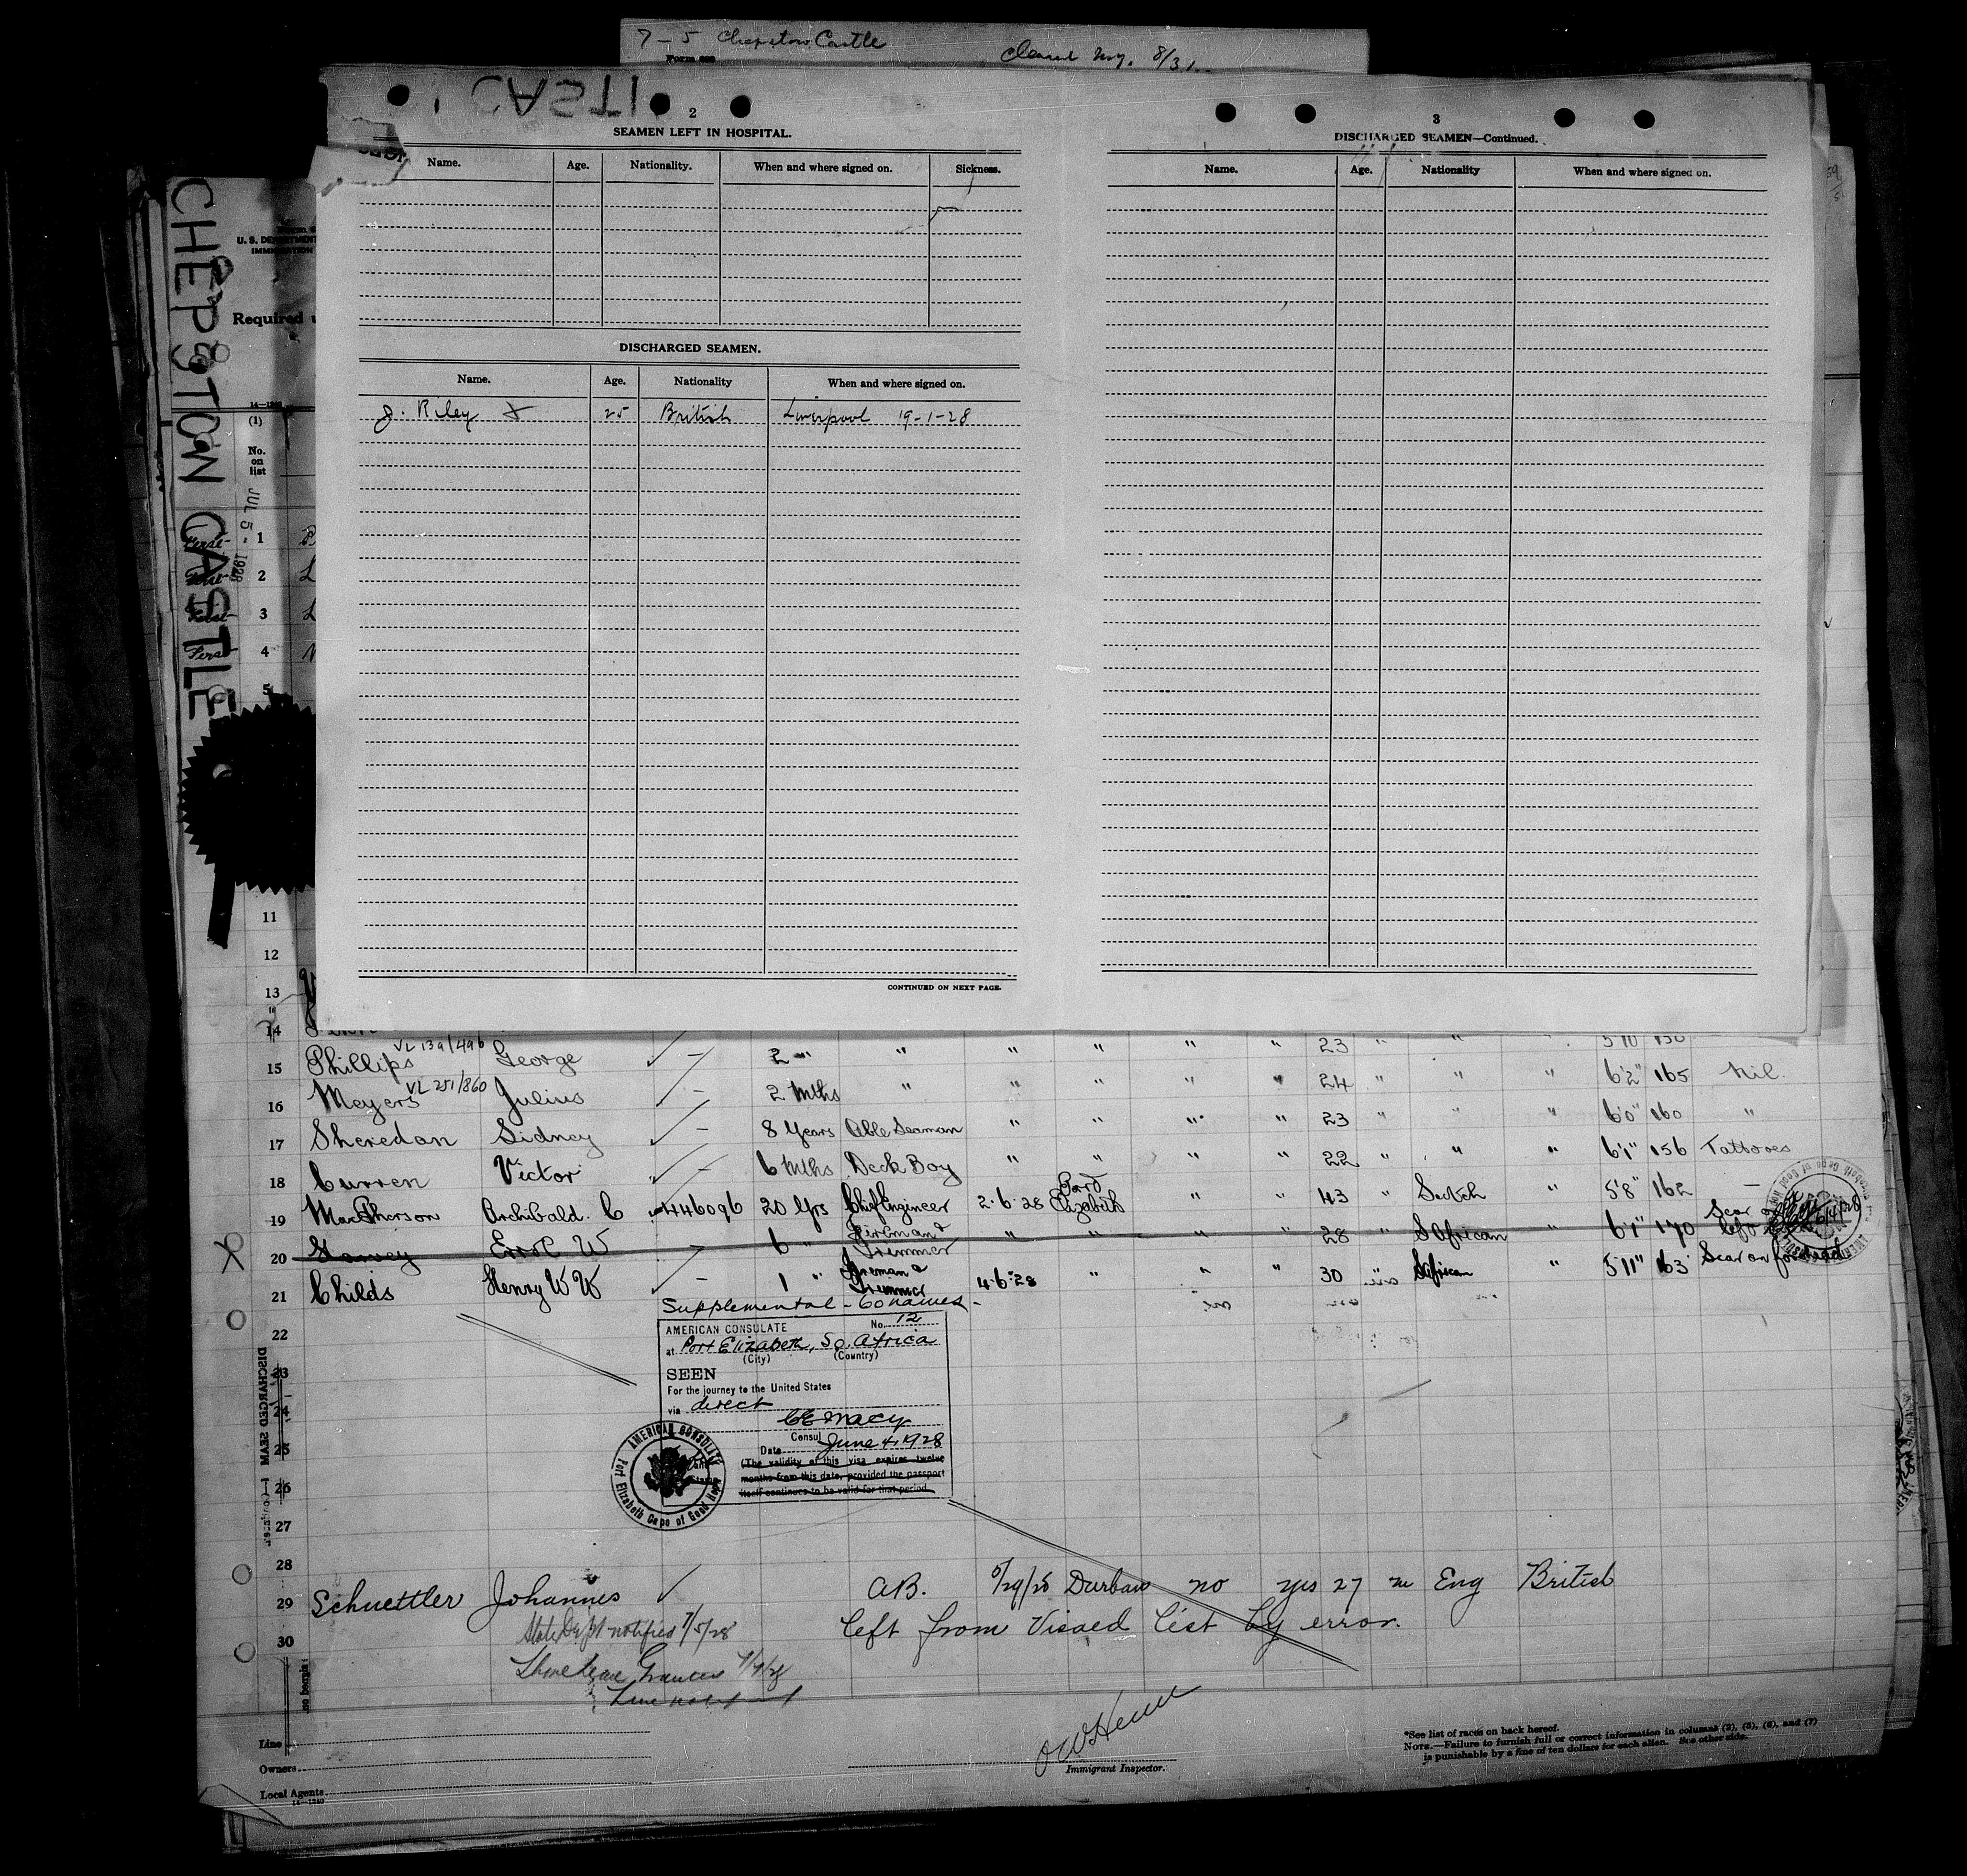 7-5 Chepstow Castle
Form
CHEPSTON CASTLE
2
SEAMEN LEFT IN HOSPITAL.
Name. Age. Nationality. When and where signed on. Sickness.
DISCHARGED SEAMEN.
Name. Age. Nationality When and where signed on.
J. Riley 25 British Liverpool 19-1-28
CONTINUED ON NEXT PAGE.
3
DISCHARGED SEAMEN—Continued.
Name. Age. Nationality When and where signed on.
Required
14-1240
(1)
No.
on
list
JUL 5 - 1928
First 1
2
First 3
First 4
5
11
12
13
14 23 " " 5'10 150
VL 139/496
15 Phillips George - 2 " " " " " " 24 " " " 6'2" 165 Nil.
VL 251/860
16 Meyers Julius - 2 Mths " " " " " 23 " " " 6'0" 160 "
17 Sheredan Sidney - 8 Years Able Seaman " " " " 22 " " " 6'1" 156 Tattooes
18 Curren Victor - 6 Mths Deck Boy " " " " 43 " Scotch " 5'8" 162 -
19 MacPherson Archibald. C 446096 20 Yrs Chif Engineer 2.6.28 Port Elizabeth " "
20 Errol W 6 " Fireman & Trimmer " " " " 28 " S African " 6'1" 170 Scar left
21 Childs Henry W W - 1 " Fireman & Trimmer 4.6.28 " " " 30 S African " 5'11" 163 Scar on forehead
Supplemental - 60 names -
22
AMERICAN CONSULATE No. 12
at Port Elizabeth, So. Africa
(City) (Country)
23
SEEN
For the journey to the United States
24
via direct
CE Macy
Consul
25
Date June 4, 1928
(The validity of this visa expires twelve
months from this date, provided the passport
itself continues to be valid for that period.
AMERICAN CONSULATE
Port Elizabeth Cape of Good Hope
26
27
28
29 Schuettler Johannes AB. Durban no yes 27 m Eng British
State Dept notified 7/5/28 left from Visaed list by error.
30
DISCHARGED SEAM
Line
Owners
Local Agents
14-1240
Immigrant Inspector.
*See list of races on back hereof.
NOTE.—Failure to furnish full or correct information in columns (2), (3), (6), and (7)
is punishable by a fine of ten dollars for each alien. See other side.